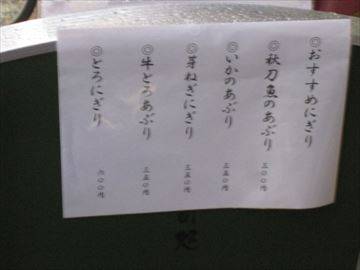 ◎おすすめにぎり
◎秋刀魚のあぶり 三〇〇円
◎いかのあぶり 三五〇円
◎芽ねぎにぎり 三五〇円
◎牛とろあぶり 三五〇円
◎とろにぎり 六〇〇円
処